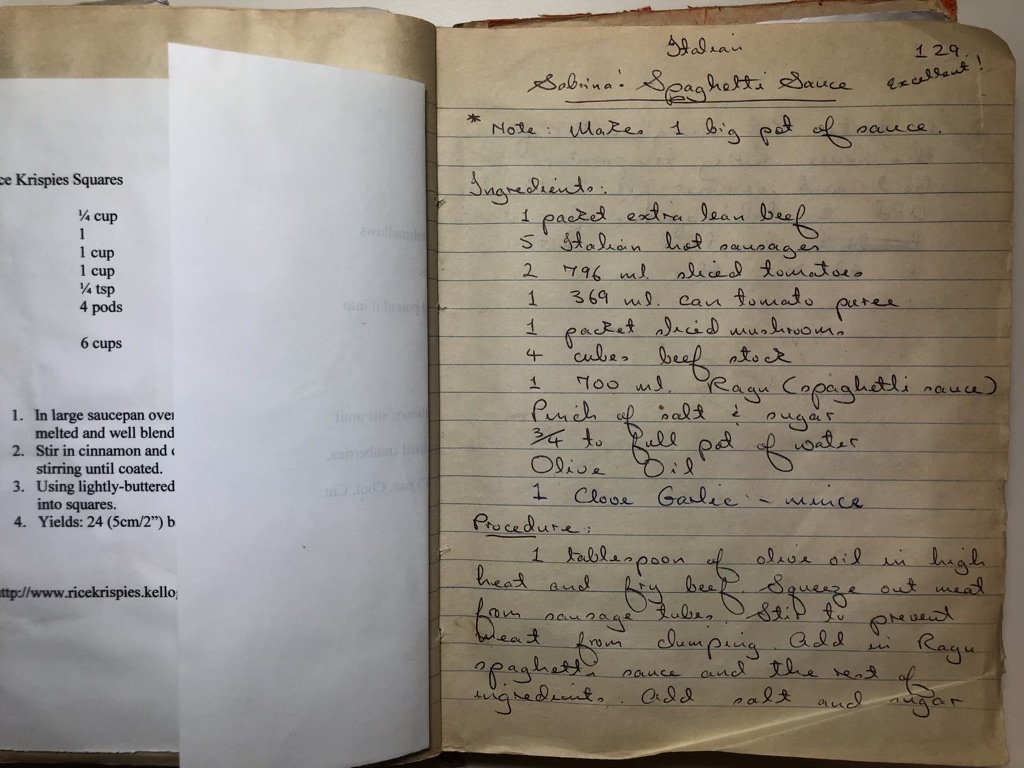 ce Krispies Squares
¼ cup
1
1 cup
1 cup
¼ tsp
4 pods
6 cups
1. In large saucepan over
melted and well blend
2. Stir in cinnamon and
stirring until coated.
3. Using lightly-buttered
into squares.
4. Yields: 24 (5cm/2") b
ttp://www.ricekrispies.kello
Italian
129.
Sabrina's Spaghetti Sauce
Excellent!
* Note: Makes 1 big pot of sauce.
Ingredients:
1 packet extra lean beef
5 Italian hot sausages
2 796 ml. sliced tomatoes
1 369 ml. can tomato puree
1 packet sliced mushrooms
4 cubes beef stock
1 700 ml. Ragu (spaghetti sauce)
Pinch of salt & sugar
3/4 to full pot of water
Olive Oil
1 Clove Garlic - mince
Procedure:
1 tablespoon of olive oil in high
heat and fry beef. Squeeze out meat
from sausage tubes. Stir to prevent
meat from clumping. Add in Ragu
spaghetti sauce and the rest of
ingredients. Add salt and sugar